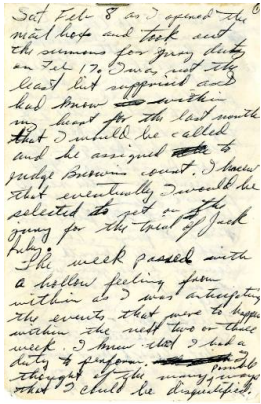 Sat Feb 8 as I opened the
mail box and took out
the summons for jury duty
on Feb 17, I was not the
least bit surprised as I
had know within
my heart for the last month
that I would be called
and be assigned to
Judge Browns court. I knew
that eventually I would be
selected to set on the
jury for the trial of Jack
Ruby.
The week passed with
a hollow feeling from
within as I was anticipating
the events that were to happen
within the next two or three
week. I knew that I had a
duty to perform I
thought of the many possible ways
that I could be disqualified.